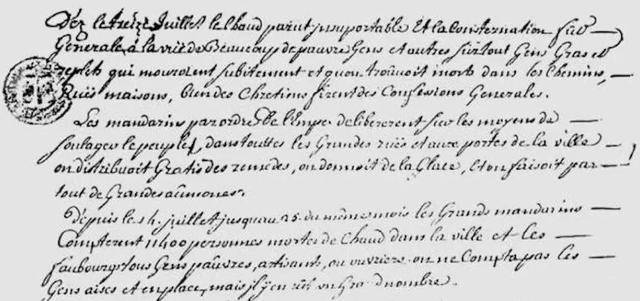 Déz le treize Juillet le chaud parut insuportable Et la Consternation fut
Generale, à la vüe de Beaucoup de pauvre Gens et autres surtout Gens Gras et
replets qui mouroient subitement et quon trouvoit morts dans les Chemins,
Rues maisons, bien des Chretiens firent des Confessions Generales.
Les mandarins par ordre de l'Emper. delibererent sur les moyens de
soulager le peuple, dans touttes les Grandes rües et aux portes de la ville
on distribuoit Gratis des remedes, on donnoit de la Glace, et on faisoit par
tout de Grandes aumones.
Dépuis le 14. juillet jusquau 25. du même mois les Grands mandarins
Compterent 11400 personnes mortes de Chaud dans la ville et les
faubourgs tous Gens paûvres, artisants, ou ouvriers. on ne Compta pas les
Gens aises et en place, mais il y en eût un Grand nombre.